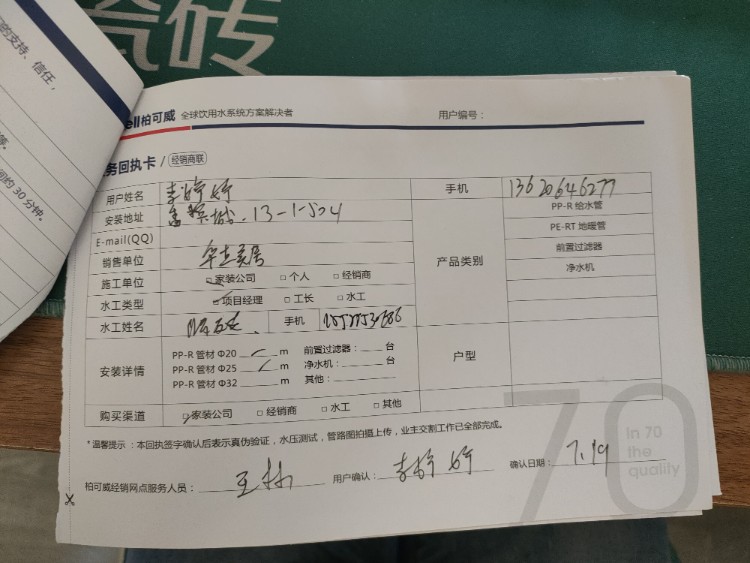 瓷砖
的支持、信任，
约 30 分钟。
ell柏可威 全球饮用水系统方案解决者 用户编号：
务回执卡 / 经销商联
用户姓名 李婷婷 手机 13620646277
安装地址 13-1-504 PP-R 给水管
E-mail(QQ) PE-RT 地暖管
销售单位 华立美居 产品类别 前置过滤器
施工单位 家装公司 □ 个人 □ 经销商 净水机
水工类型 项目经理 □ 工长 □ 水工
水工姓名 手机
安装详情 PP-R 管材 Φ20 m 前置过滤器： 台 户型
PP-R 管材 Φ25 m 净水机： 台
PP-R 管材 Φ32 m 其他：
购买渠道 家装公司 □ 经销商 □ 水工 □ 其他
* 温馨提示 ：本回执签字确认后表示真伪验证，水压测试，管路图拍摄上传，业主交割工作已全部完成。
柏可威经销网点服务人员： 王林 用户确认： 李婷婷 确认日期： 7.19
70
In 70
the
quality